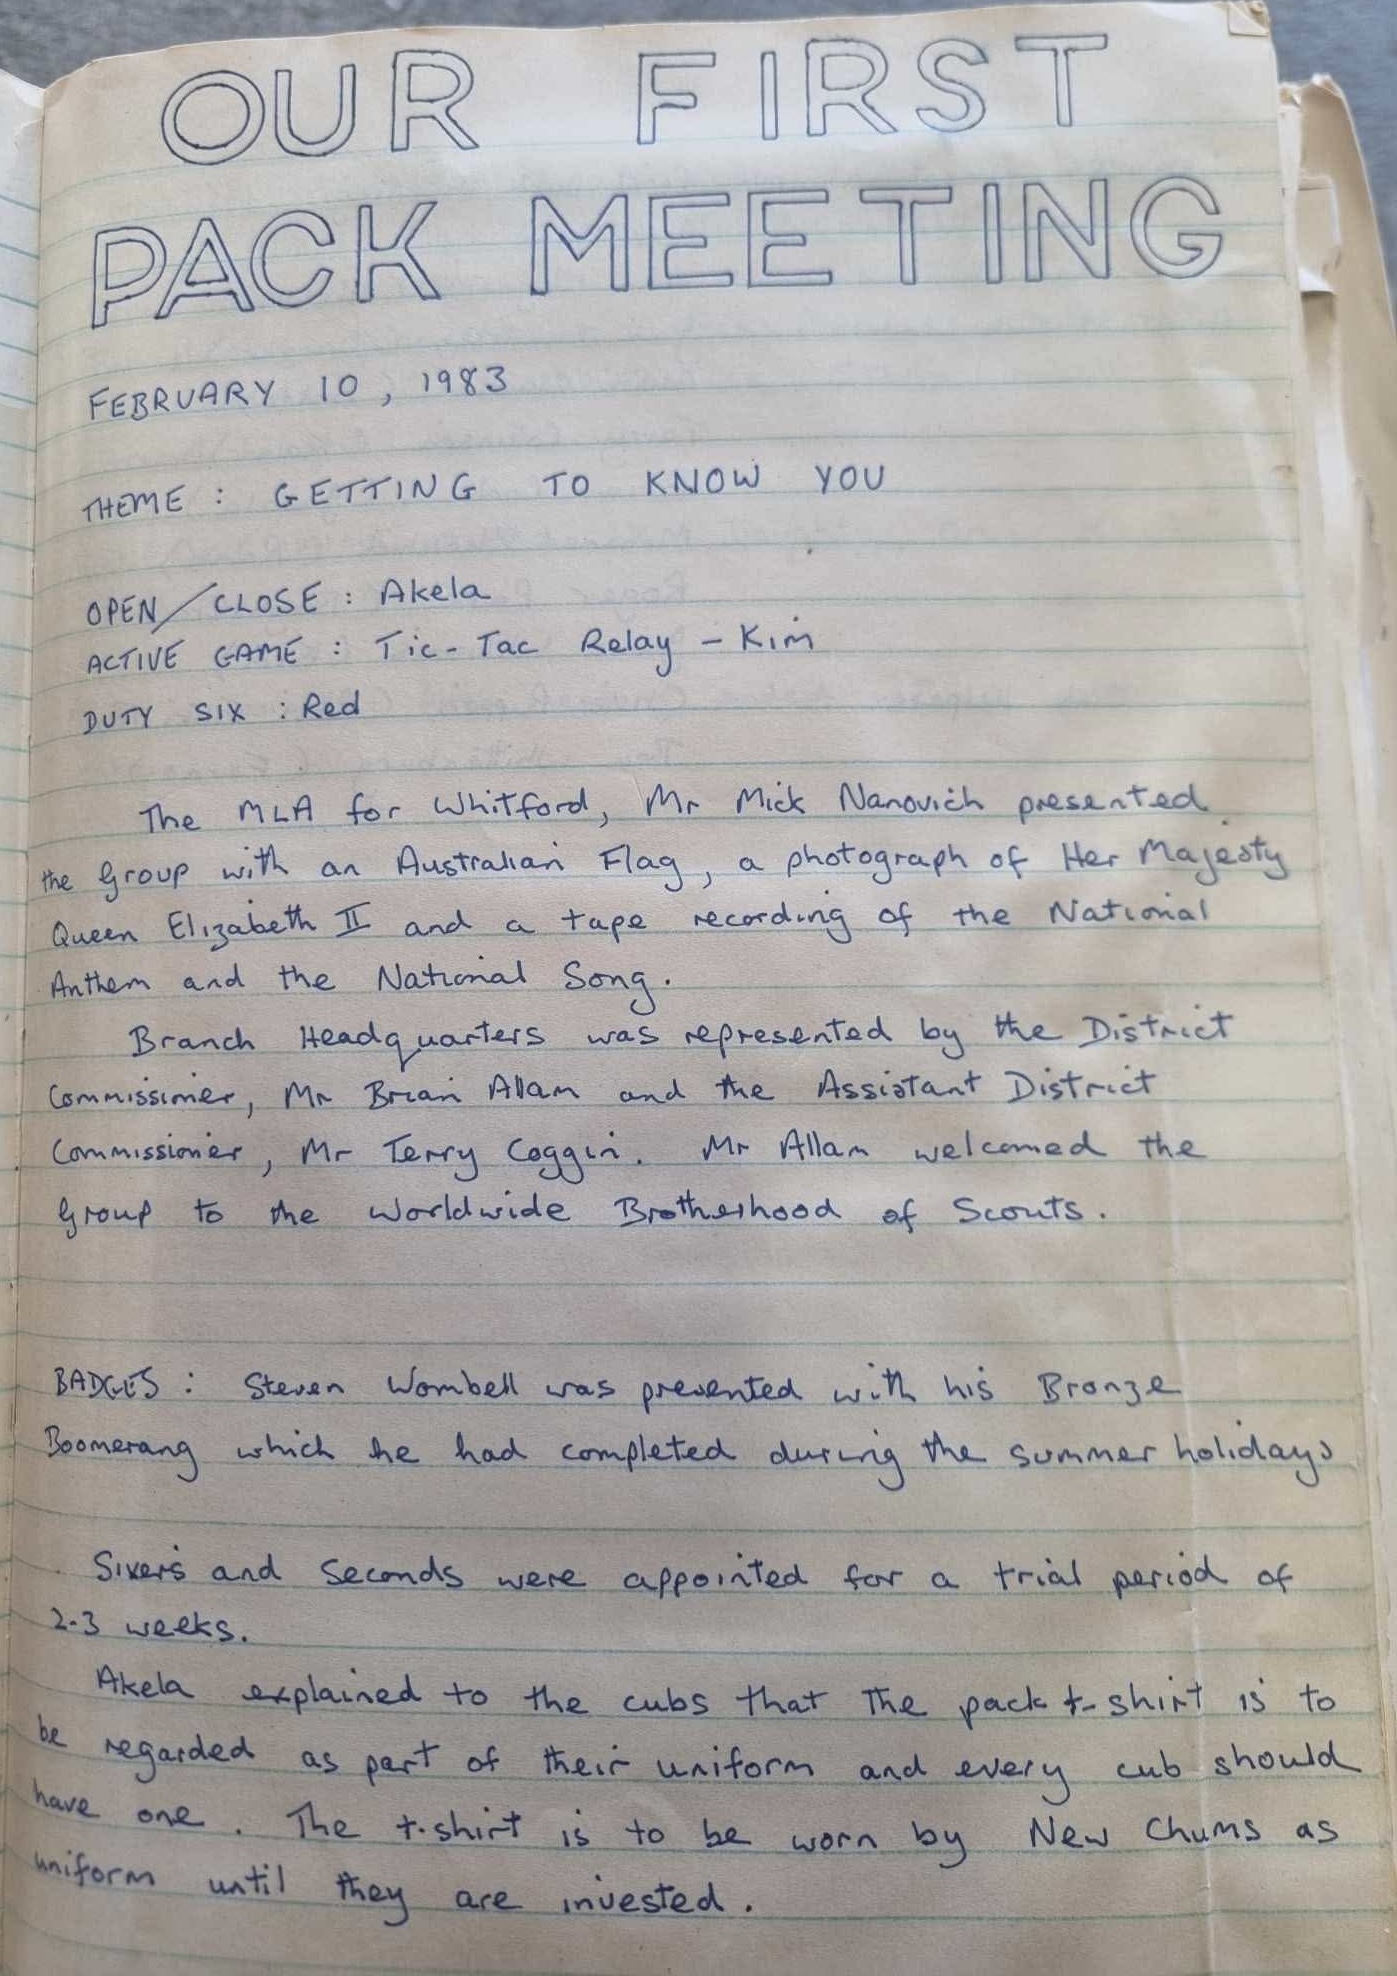 OUR FIRST
PACK MEETING
FEBRUARY 10, 1983
THEME : GETTING TO KNOW YOU
OPEN/CLOSE : Akela
ACTIVE GAME : Tic-Tac Relay - Kim
DUTY SIX : Red
The MLA for Whitford, Mr Mick Nanovich presented
the Group with an Australian Flag, a photograph of Her Majesty
Queen Elizabeth II and a tape recording of the National
Anthem and the National Song.
Branch Headquarters was represented by the District
Commissioner, Mr Brian Allam and the Assistant District
Commissioner, Mr Terry Coggin. Mr Allam welcomed the
Group to the Worldwide Brotherhood of Scouts.
BADGES : Steven Wombell was presented with his Bronze
Boomerang which he had completed during the summer holidays
Sixers and Seconds were appointed for a trial period of
2-3 weeks.
Akela explained to the cubs that the pack t-shirt is to
be regarded as part of their uniform and every cub should
have one. The t-shirt is to be worn by New Chums as
uniform until they are invested.